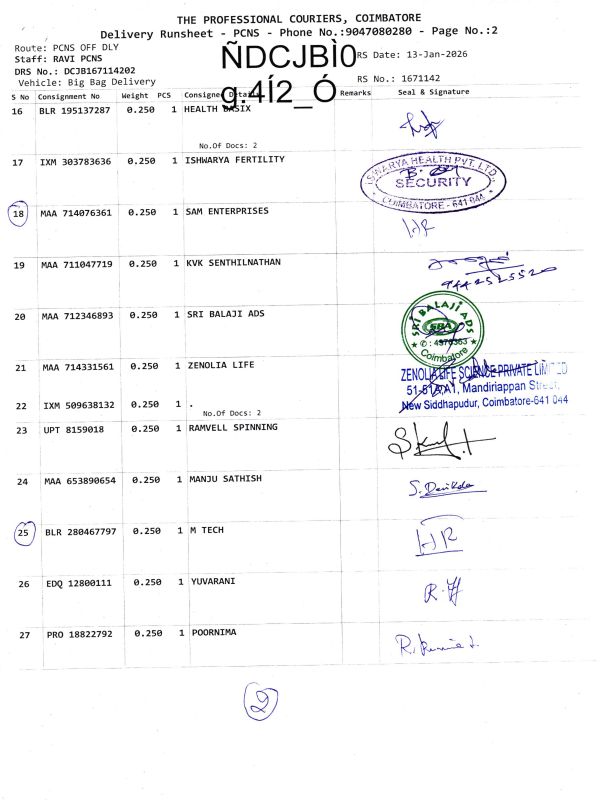 THE PROFESSIONAL COURIERS, COIMBATORE
Delivery Runsheet - PCNS - Phone No.:9047080280 - Page No.:2
Route: PCNS OFF DLY
Staff: RAVI PCNS
DRS No.: DCJB167114202
Vehicle: Big Bag Delivery
ÑDCJBÌ0
g.4Í2_Ó
RS Date: 13-Jan-2026
RS No.: 1671142
S No Consignment No Weight PCS Consignee Details Remarks Seal & Signature
16 BLR 195137287 0.250 1 HEALTH BASIX
No.Of Docs: 2
17 IXM 303783636 0.250 1 ISHWARYA FERTILITY
ISWARYA HEALTH PVT. LTD.,
SECURITY
COIMBATORE - 641 044
18 MAA 714076361 0.250 1 SAM ENTERPRISES
19 MAA 711047719 0.250 1 KVK SENTHILNATHAN
20 MAA 712346893 0.250 1 SRI BALAJI ADS
SRI BALAJI ADS
SBA
Coimbatore
21 MAA 714331561 0.250 1 ZENOLIA LIFE
ZENOLIA LIFE SCIENCE PRIVATE LIMITED
Mandiriappan Street,
New Siddhapudur, Coimbatore-641 044
22 IXM 509638132 0.250 1 .
No.Of Docs: 2
23 UPT 8159018 0.250 1 RAMVELL SPINNING
24 MAA 653890654 0.250 1 MANJU SATHISH
25 BLR 280467797 0.250 1 M TECH
26 EDQ 12800111 0.250 1 YUVARANI
27 PRO 18822792 0.250 1 POORNIMA
2